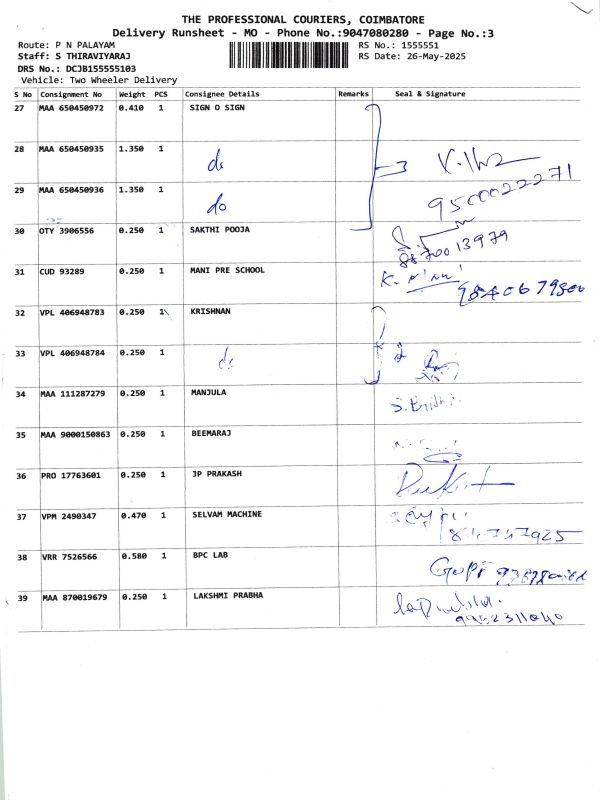 THE PROFESSIONAL COURIERS, COIMBATORE
Delivery Runsheet - MO - Phone No.:9047080280 - Page No.:3
Route: P N PALAYAM RS No.: 1555551
Staff: S THIRAVIYARAJ RS Date: 26-May-2025
DRS No.: DCJB155555103
Vehicle: Two Wheeler Delivery
S No Consignment No Weight PCS Consignee Details Remarks Seal & Signature
27 MAA 650450972 0.410 1 SIGN O SIGN
28 MAA 650450935 1.350 1 do 3
29 MAA 650450936 1.350 1 do 9500022271
30 OTY 3906556 0.250 1 SAKTHI POOJA
31 CUD 93289 0.250 1 MANI PRE SCHOOL K.
32 VPL 406948783 0.250 1 KRISHNAN
33 VPL 406948784 0.250 1 do 2
34 MAA 111287279 0.250 1 MANJULA
35 MAA 9000150863 0.250 1 BEEMARAJ
36 PRO 17763601 0.250 1 JP PRAKASH
37 VPM 2490347 0.470 1 SELVAM MACHINE
38 VRR 7526566 0.580 1 BPC LAB Gopi
39 MAA 870019679 0.250 1 LAKSHMI PRABHA